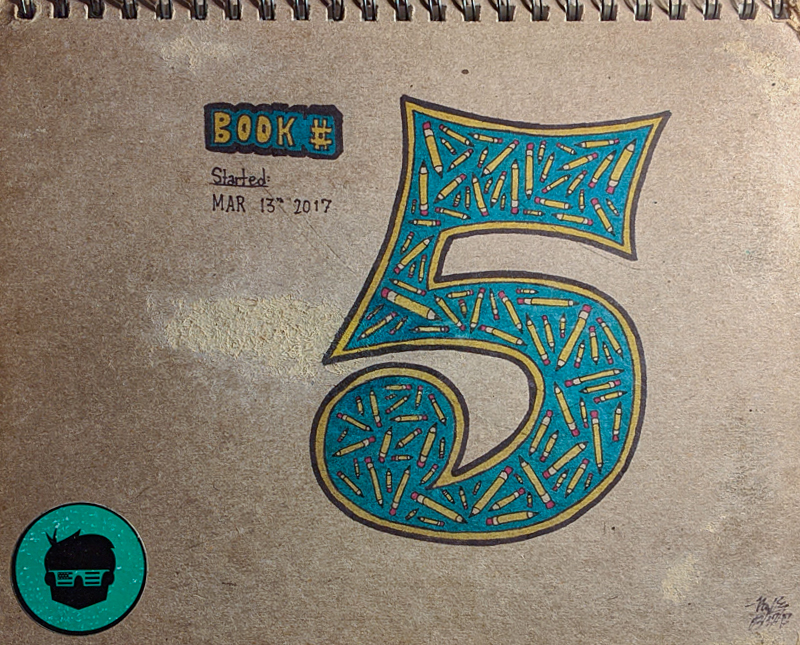 BOOK #
5
Started:
MAR 13th 2017